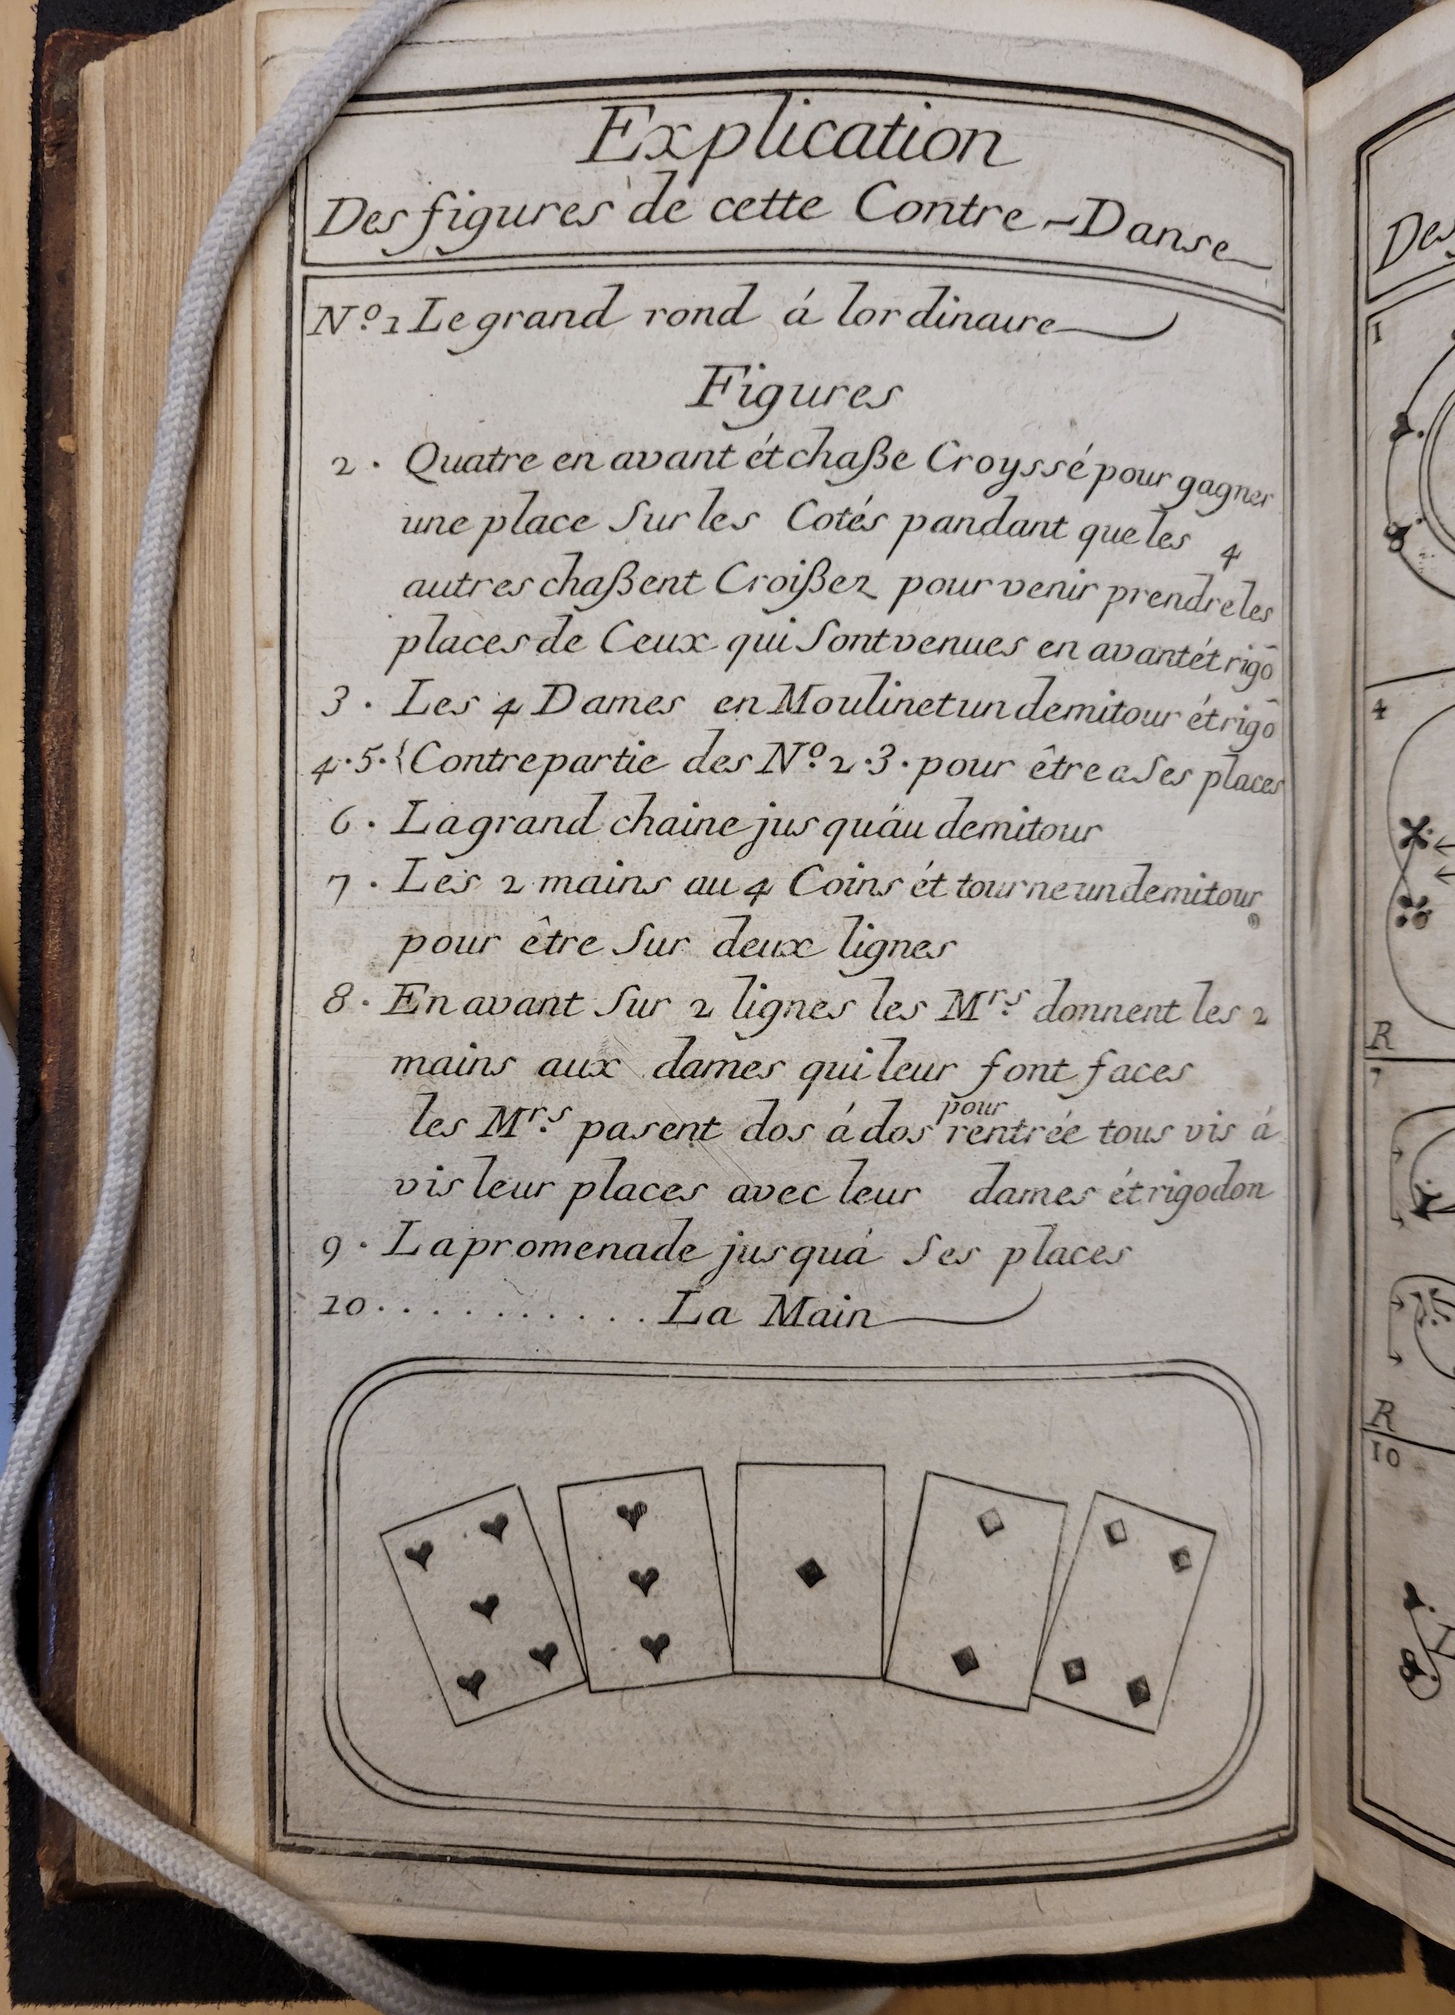 Explication
Des figures de cette Contre-Danse
Nº. 1 Le grand rond á lordinaire
Figures
2. Quatre en avant ét chaße Croyssé pour gagner
une place sur les Cotés pandant que les 4
autres chaßent Croißez pour venir prendre les
places de Ceux qui sont venues en avant ét rigō
3. Les 4 Dames en Moulinet un demitour ét rigō
4.5.{Contrepartie des Nº. 2.3. pour être a ses places
6. La grand chaine jusquáu demitour
7. Les 2 mains au 4 Coins ét tourne un demitour
pour être sur deux lignes
8. En avant sur 2 lignes les Mrs. donnent les 2
mains aux dames qui leur font faces
pour
les Mrs. pasent dos á dos rentrée tous vis á
vis leur places avec leur dames ét rigodon
9. La promenade jusquá ses places
10........... La Main
Des
1
4
R
7
R
10